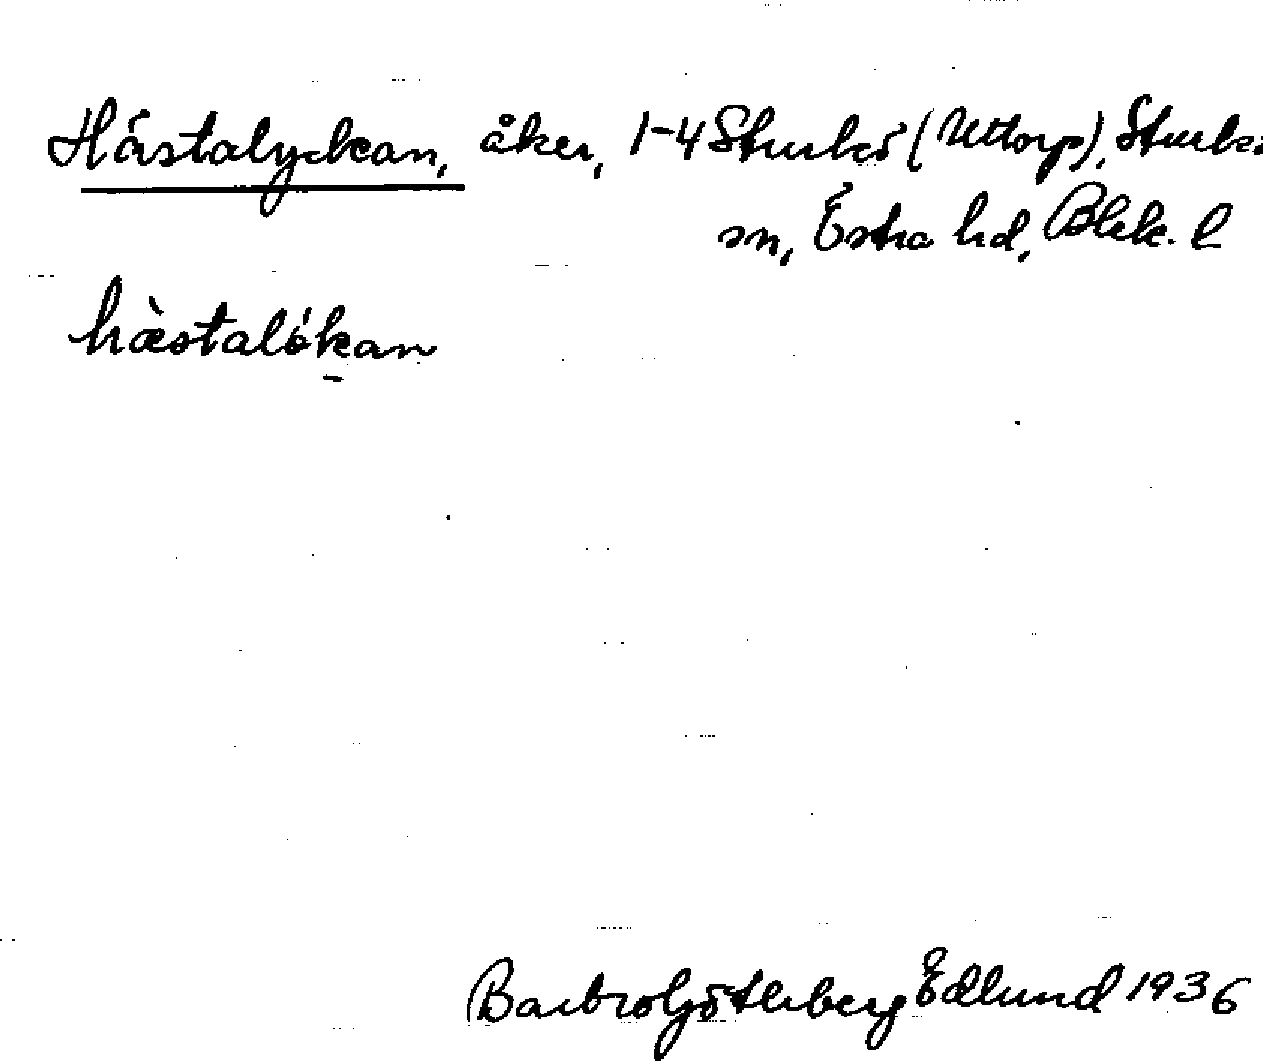 Hästalyckan, åker, 1-4 Sturkö (Uttorp), Sturkö
sn, Östra hd, Blek. l
hæ̀stalókan
Barbro Götherberg Edlund 1936